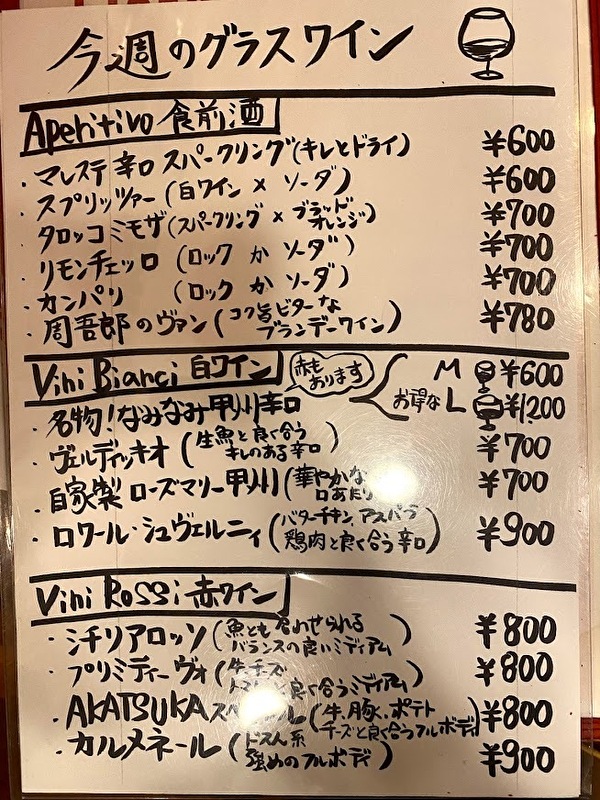 今週のグラスワイン
Aperitivo 食前酒
・マレステ辛口スパークリング(キレとドライ) ¥600
・スプリッツァー(白ワイン×ソーダ) ¥600
・タロッコミモザ(スパークリング×ブラッドオレンジ) ¥700
・リモンチェッロ(ロックかソーダ) ¥700
・カンパリ(ロックかソーダ) ¥700
・周吾郎のヴァン(コク旨ビターなブランデーワイン) ¥780
Vini Bianci 白ワイン
赤もあります
・名物!なみなみ甲州辛口 M ¥600
お得な L ¥1,200
・ヴェルディッキオ(生魚と良く合うキレのある辛口) ¥700
・自家製ローズマリー甲州(華やかな口あたり ¥700
・ロワール・シュヴェルニィ(バターチキン、アスパラ鶏肉と良く合う辛口) ¥900
Vini Rossi 赤ワイン
・シチリアロッソ(魚とも合わせられるバランスの良いミディアム) ¥800
・プリミティーヴォ(牛チーズ と良く合うミディアム) ¥800
・AKATSUKA (牛、豚、ポテトチーズと良く合うフルボディ) ¥800
・カルメネール( 強めのフルボディ) ¥900